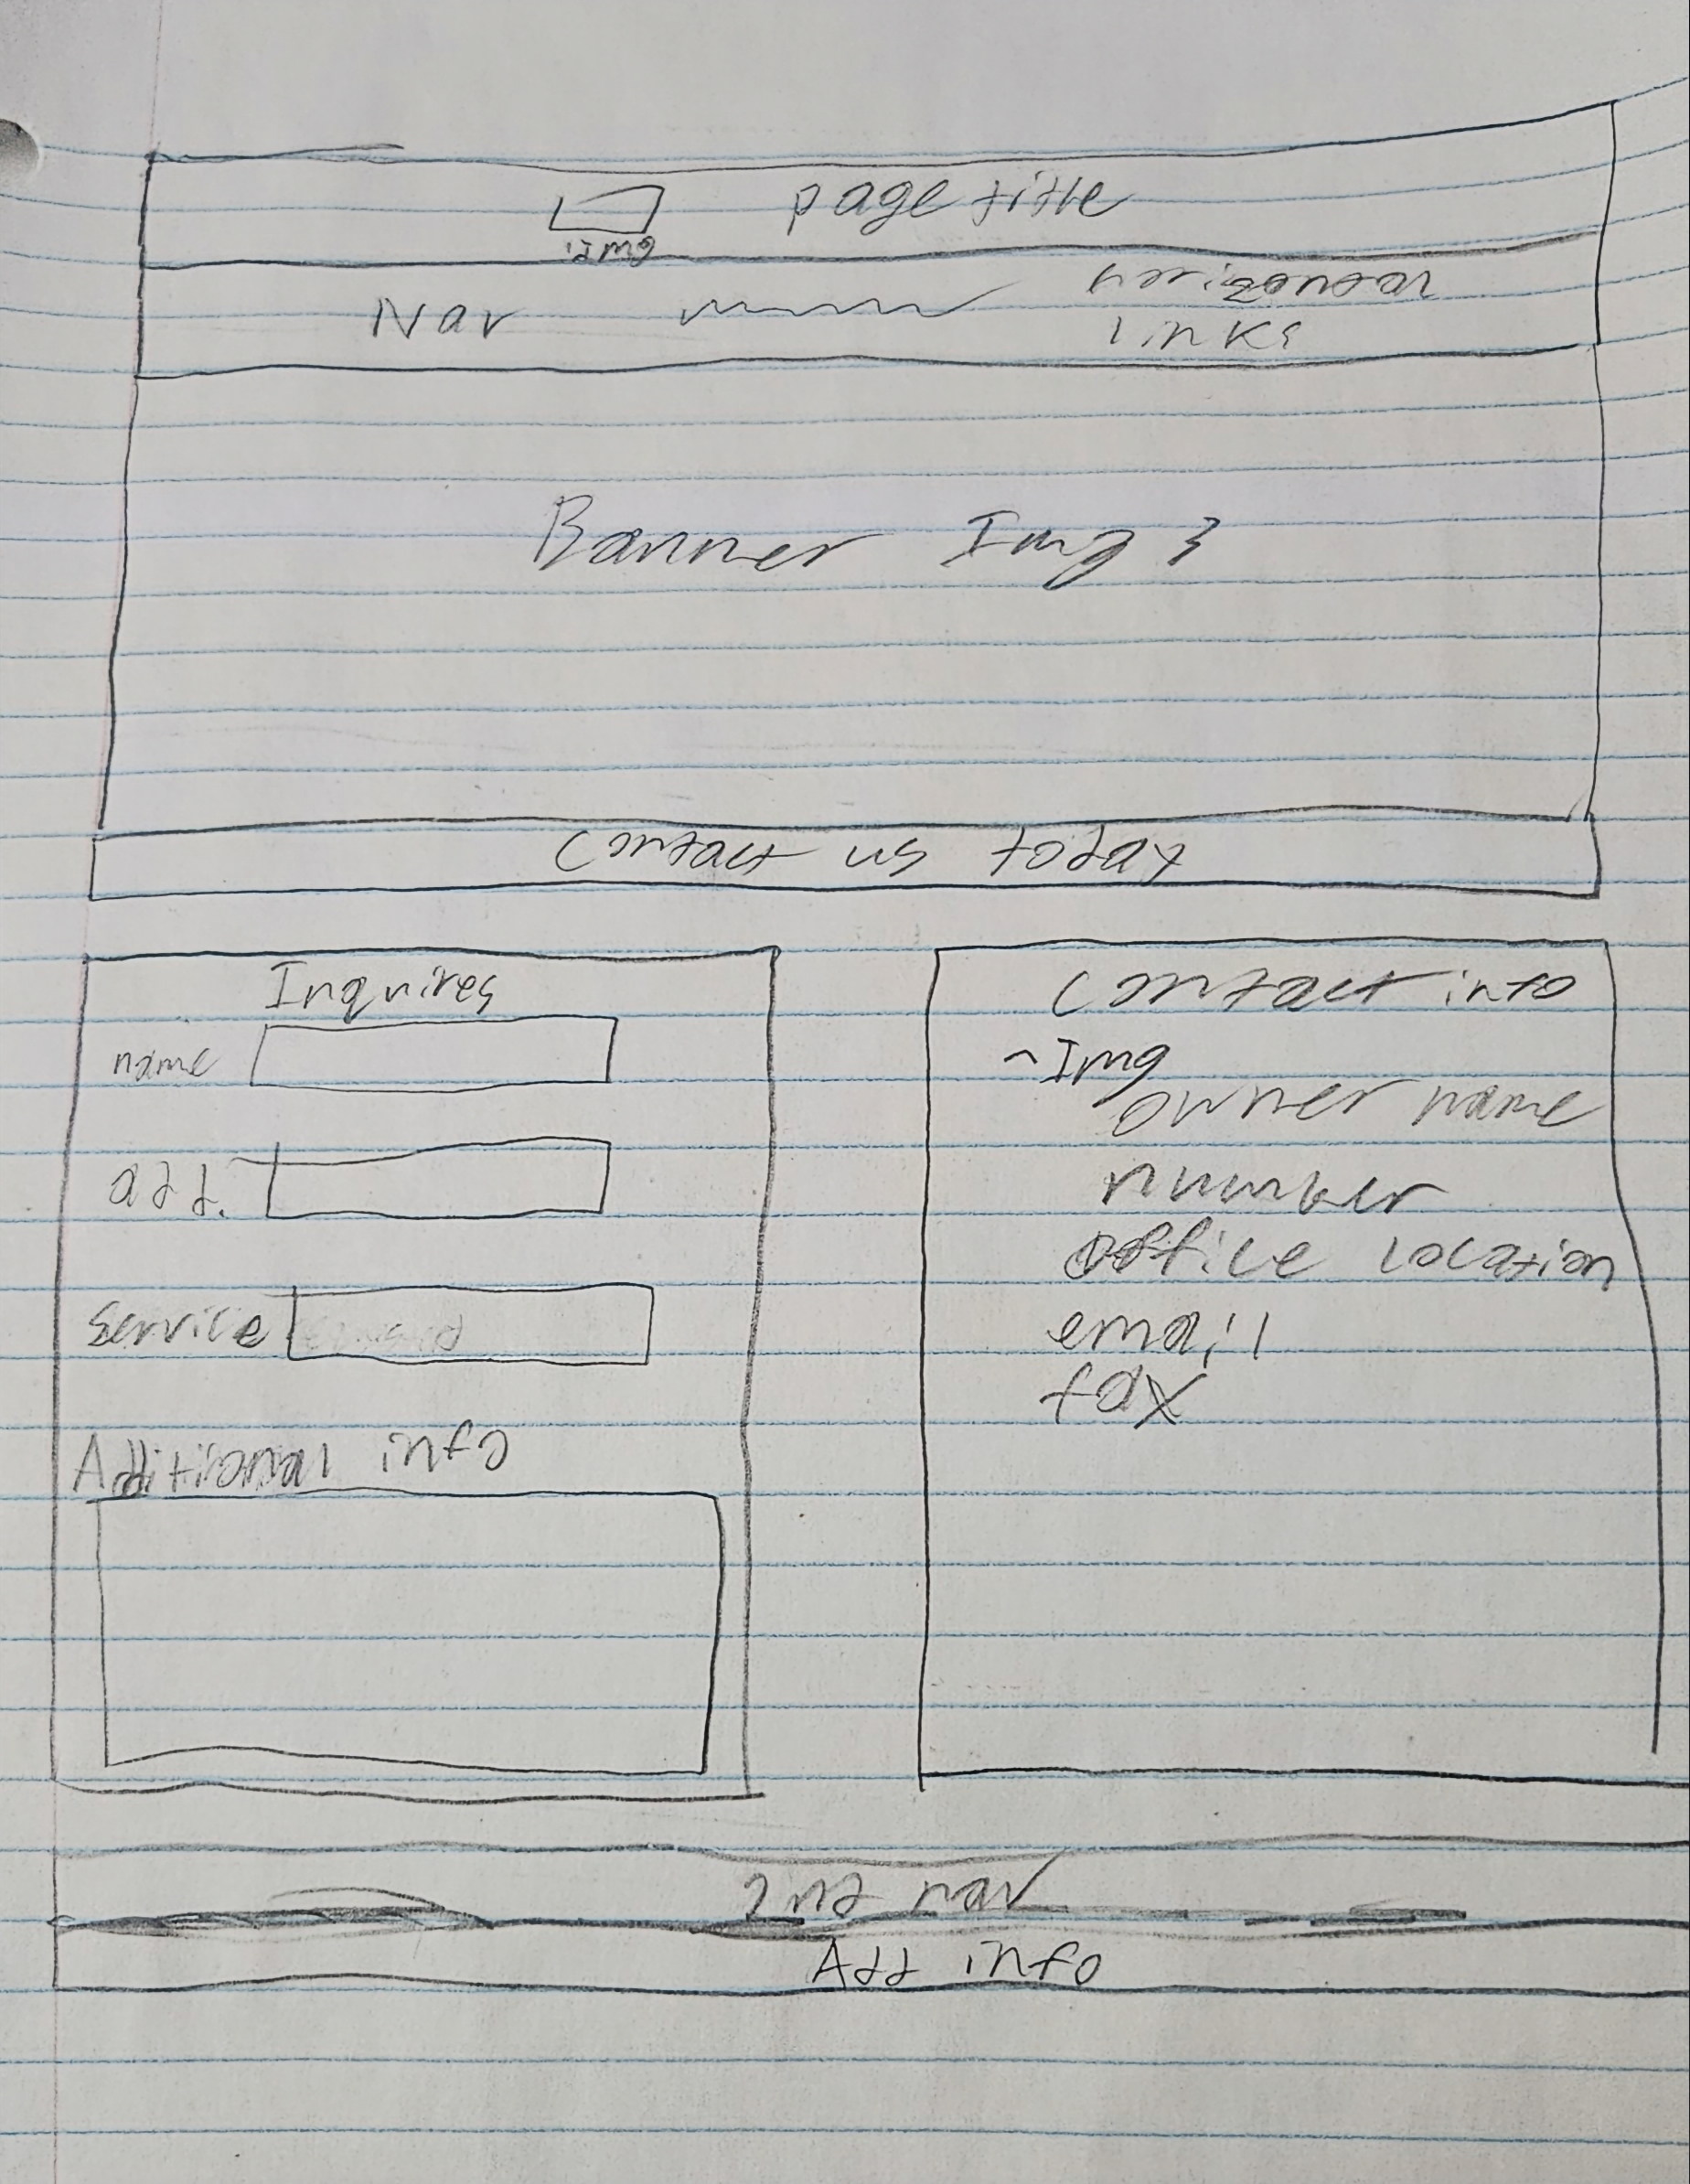 page title
img
Nav
horizontal
links
Banner Img 3
Contact us today
Inquires
name
add.
Service
Additional info
Contact info
~Img
owner name
number
office location
email
fax
2nd nav
Add info